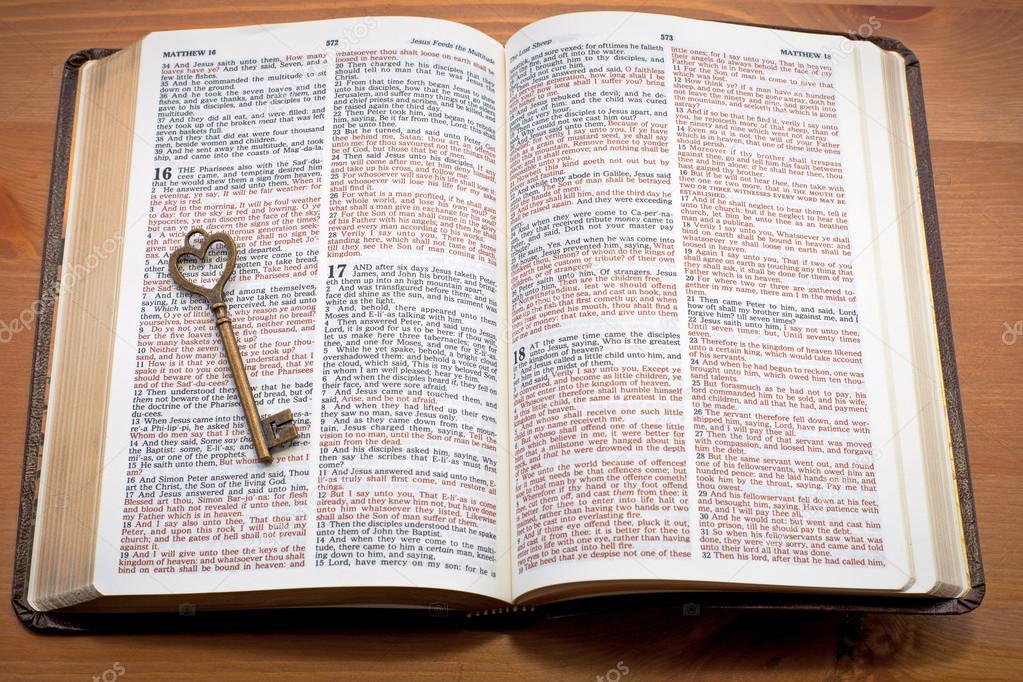 MATTHEW 16
572
Jesus Feeds the Multitude
34 And Jesus saith unto them, How many
loaves have ye? And they said, Seven, and a
few little fishes.
35 And he commanded the multitude to sit
down on the ground.
36 And he took the seven loaves and the
fishes, and gave thanks, and brake them, and
gave to his disciples, and the disciples to the
multitude.
37 And they did all eat, and were filled: and
they took up of the broken meat that was left
seven baskets full.
38 And they that did eat were four thousand
men, beside women and children.
39 And he sent away the multitude, and took
ship, and came into the coasts of Mag'da-la.
16 THE Pharisees also with the Sad'du-
cees came, and tempting desired him
that he would shew them a sign from heaven.
2 He answered and said unto them, When it
is evening, ye say, It will be fair weather: for
the sky is red.
3 And in the morning, It will be foul weather
to day: for the sky is red and lowring. O ye
hypocrites, ye can discern the face of the sky;
but can the signs of the times?
4 A adulterous generation seek-
eth after
of the prophet Jo'-
departed.
to take bread.
6 Then Jesus said unto them, Take heed and
beware of the Pharisees and
of the
7 And they among themselves,
saying, It is we have taken no bread.
8 Which when Jesus perceived, he said unto
them, O ye of little why reason ye among
yourselves, because brought no bread?
9 Do ye not yet neither remem-
ber the five loaves of the five thousand, and
how many baskets ye took up?
10 Neither the seven loaves of the four thou-
sand, and how many baskets ye took up?
11 How is it that ye do not understand that I
spake it not to you concerning bread, that ye
should beware of the leaven of the Pharisees
and of the Sad'du-cees?
12 Then understood they how that he bade
them not beware of the leaven of bread, but of
the doctrine of the Pharisees and of the Sad'-
du-cees.
13 When Jesus came into the
he asked his
Whom do men say that I
14 And they said, Some say that thou
Baptist: some, E-li'-as; and
mi'-as, or one of the prophets.
15 He saith unto them, But whom say ye that I
am?
16 And Simon Peter answered and said, Thou
art the Christ, the Son of the living God.
17 And Jesus answered and said unto him,
Blessed art thou, Simon Bar-jo'-na: for flesh
and blood hath not revealed it unto thee, but
my Father which is in heaven.
18 And I say also unto thee, That thou art
Peter, and upon this rock I will build my
church; and the gates of hell shall not prevail
against it.
19 And I will give unto thee the keys of the
kingdom of heaven: and whatsoever thou shalt
bind on earth shall be bound in heaven: and
whatsoever thou shalt loose on earth shall be
loosed in heaven.
20 Then charged he his disciples that they
should tell no man that he was Jesus the
Christ.
21 From that time forth began Jesus to shew
unto his disciples, how that he must go unto
Jerusalem, and suffer many things of the elders
and chief priests and scribes, and be killed, and
be raised again the third day.
22 Then Peter took him, and began to rebuke
him, saying, Be it far from thee, Lord: this shall
not be unto thee.
23 But he turned, and said unto Peter, Get
thee behind me, Satan: thou art an offence
unto me: for thou savourest not the things that
be of God, but those that be of men.
24 Then said Jesus unto his disciples, If any
man will come after me, let him deny himself,
and take up his cross, and follow me.
25 For whosoever will save his life shall lose it:
and whosoever will lose his life for my sake
shall find it.
26 For what is a man profited, if he shall gain
the whole world, and lose his own soul? or
what shall a man give in exchange for his soul?
27 For the Son of man shall come in the glory
of his Father with his angels; and then he shall
reward every man according to his works.
28 Verily I say unto you, There be some
standing here, which shall not taste of death,
till they see the Son of man coming in his
kingdom.
17 AND after six days Jesus taketh Peter,
James, and John his brother, and bring-
eth them up into an high mountain apart,
2 And was transfigured before them: and his
face did shine as the sun, and his raiment was
white as the light.
3 And, behold, there appeared unto them
Moses and E-li'-as talking with him.
4 Then answered Peter, and said unto Jesus,
Lord, it is good for us to be here: if thou wilt,
let us make here three tabernacles; one for
thee, and one for Moses, and one for E-li'-as.
5 While he yet spake, behold, a bright cloud
overshadowed them: and behold a voice out
of the cloud, which said, This is my beloved Son,
in whom I am well pleased; hear ye him.
6 And when the disciples heard it, they fell on
their face, and were sore afraid.
7 And Jesus came and touched them, and
said, Arise, and be not afraid.
8 And when they had lifted up their eyes,
they saw no man, save Jesus only.
9 And as they came down from the moun-
tain, Jesus charged them, saying, Tell the
vision to no man, until the Son of man be risen
again from the dead.
10 And his disciples asked him, saying, Why
then say the scribes that E-li'-as must first
come?
11 And Jesus answered and said unto them, E-
li'-as truly shall first come, and restore all
things.
12 But I say unto you, That E-li'-as is come
already, and they knew him not, but have done
unto him whatsoever they listed. Likewise
shall also the Son of man suffer of them.
13 Then the disciples understood that he spake
unto them of John the Baptist.
14 And when they were come to the multi-
tude, there came to him a certain man, kneel-
ing down to him, and saying,
15 Lord, have mercy on my son: for he is
The Lost Sheep
573
MATTHEW 18
lunatick, and sore vexed: for ofttimes he falleth
into the fire, and oft into the water.
brought him to thy disciples, and
could not cure him.
Jesus answered and said, O faithless
generation, how long shall I be
how long shall I suffer you? bring
Jesus rebuked the devil; and he de-
out of him: and the child was cured
that very hour.
came the disciples to Jesus apart, and
Why could not we cast him out?
Jesus said unto them, Because of your
for verily I say unto you, If ye have
faith as a grain of mustard seed, ye shall say
unto this mountain, Remove hence to yonder
place; and it shall remove; and nothing shall be
this kind goeth not out but by
And while they abode in Galilee, Jesus said
unto them, The Son of man shall be betrayed
shall kill him, and the third day he
shall be raised again. And they were exceeding
And when they were come to Ca-per'-na-
they that received tribute money came to
Peter, and said, Doth not your master pay
25 He saith, Yes. And when he was come into
the house, Jesus prevented him, saying, What
thinkest thou, Simon? of whom do the kings of
the earth take custom or tribute? of their own
children, or of strangers?
26 Peter saith unto him, Of strangers. Jesus
saith unto him, Then are the children free.
27 Notwithstanding, lest we should offend
them, go thou to the sea, and cast an hook, and
take up the fish that first cometh up; and when
thou hast opened his mouth, thou shalt find a
piece of money: that take, and give unto them
for me and thee.
18 AT the same time came the disciples
unto Jesus, saying, Who is the greatest
in the kingdom of heaven?
2 And Jesus called a little child unto him, and
set him in the midst of them,
3 And said, Verily I say unto you, Except ye
be converted, and become as little children, ye
shall not enter into the kingdom of heaven.
4 Whosoever therefore shall humble himself
as this little child, the same is greatest in the
kingdom of heaven.
5 And whoso shall receive one such little
child in my name receiveth me.
6 But whoso shall offend one of these little
ones which believe in me, it were better for
him that a millstone were hanged about his
neck, and that he were drowned in the depth
of the sea.
7 Woe unto the world because of offences!
for it must needs be that offences come; but
woe to that man by whom the offence cometh!
8 Wherefore if thy hand or thy foot offend
thee, cut them off, and cast them from thee: it
is better for thee to enter into life halt or
maimed, rather than having two hands or two
feet to be cast into everlasting fire.
9 And if thine eye offend thee, pluck it out,
and cast it from thee: it is better for thee to
enter into life with one eye, rather than having
two eyes to be cast into hell fire.
10 Take heed that ye despise not one of these
little ones; for I say unto you, That in heaven
their angels do always behold the face of my
Father which is in heaven.
11 For the Son of man is come to save that
which was lost.
12 How think ye? if a man have an hundred
sheep, and one of them be gone astray, doth he
not leave the ninety and nine, and goeth into
the mountains, and seeketh that which is gone
astray?
13 And if so be that he find it, verily I say unto
you, he rejoiceth more of that sheep, than of
the ninety and nine which went not astray.
14 Even so it is not the will of your Father
which is in heaven, that one of these little ones
should perish.
15 Moreover if thy brother shall trespass
against thee, go and tell him his fault between
thee and him alone: if he shall hear thee, thou
hast gained thy brother.
16 But if he will not hear thee, then take with
thee one or two more, that IN THE MOUTH
OF TWO OR THREE WITNESSES EVERY WORD MAY BE
ESTABLISHED.
17 And if he shall neglect to hear them, tell it
unto the church: but if he neglect to hear the
church, let him be unto thee as an heathen
man and a publican.
18 Verily I say unto you, Whatsoever ye shall
bind on earth shall be bound in heaven: and
whatsoever ye shall loose on earth shall be
loosed in heaven.
19 Again I say unto you, That if two of you
shall agree on earth as touching any thing that
they shall ask, it shall be done for them of my
Father which is in heaven.
20 For where two or three are gathered to-
gether in my name, there am I in the midst of
them.
21 Then came Peter to him, and said, Lord,
how oft shall my brother sin against me, and I
forgive him? till seven times?
22 Jesus saith unto him, I say not unto thee,
Until seven times: but, Until seventy times
seven.
23 Therefore is the kingdom of heaven likened
unto a certain king, which would take account
of his servants.
24 And when he had begun to reckon, one was
brought unto him, which owed him ten thou-
sand talents.
25 But forasmuch as he had not to pay, his
lord commanded him to be sold, and his wife,
and children, and all that he had, and payment
to be made.
26 The servant therefore fell down, and wor-
shipped him, saying, Lord, have patience with
me, and I will pay thee all.
27 Then the lord of that servant was moved
with compassion, and loosed him, and forgave
him the debt.
28 But the same servant went out, and found
one of his fellowservants, which owed him an
hundred pence: and he laid hands on him, and
took him by the throat, saying, Pay me that
thou owest.
29 And his fellowservant fell down at his feet,
and besought him, saying, Have patience with
me, and I will pay thee all.
30 And he would not: but went and cast him
into prison, till he should pay the debt.
31 So when his fellowservants saw what was
done, they were very sorry, and came and told
unto their lord all that was done.
32 Then his lord, after that he had called him,
depositphotos